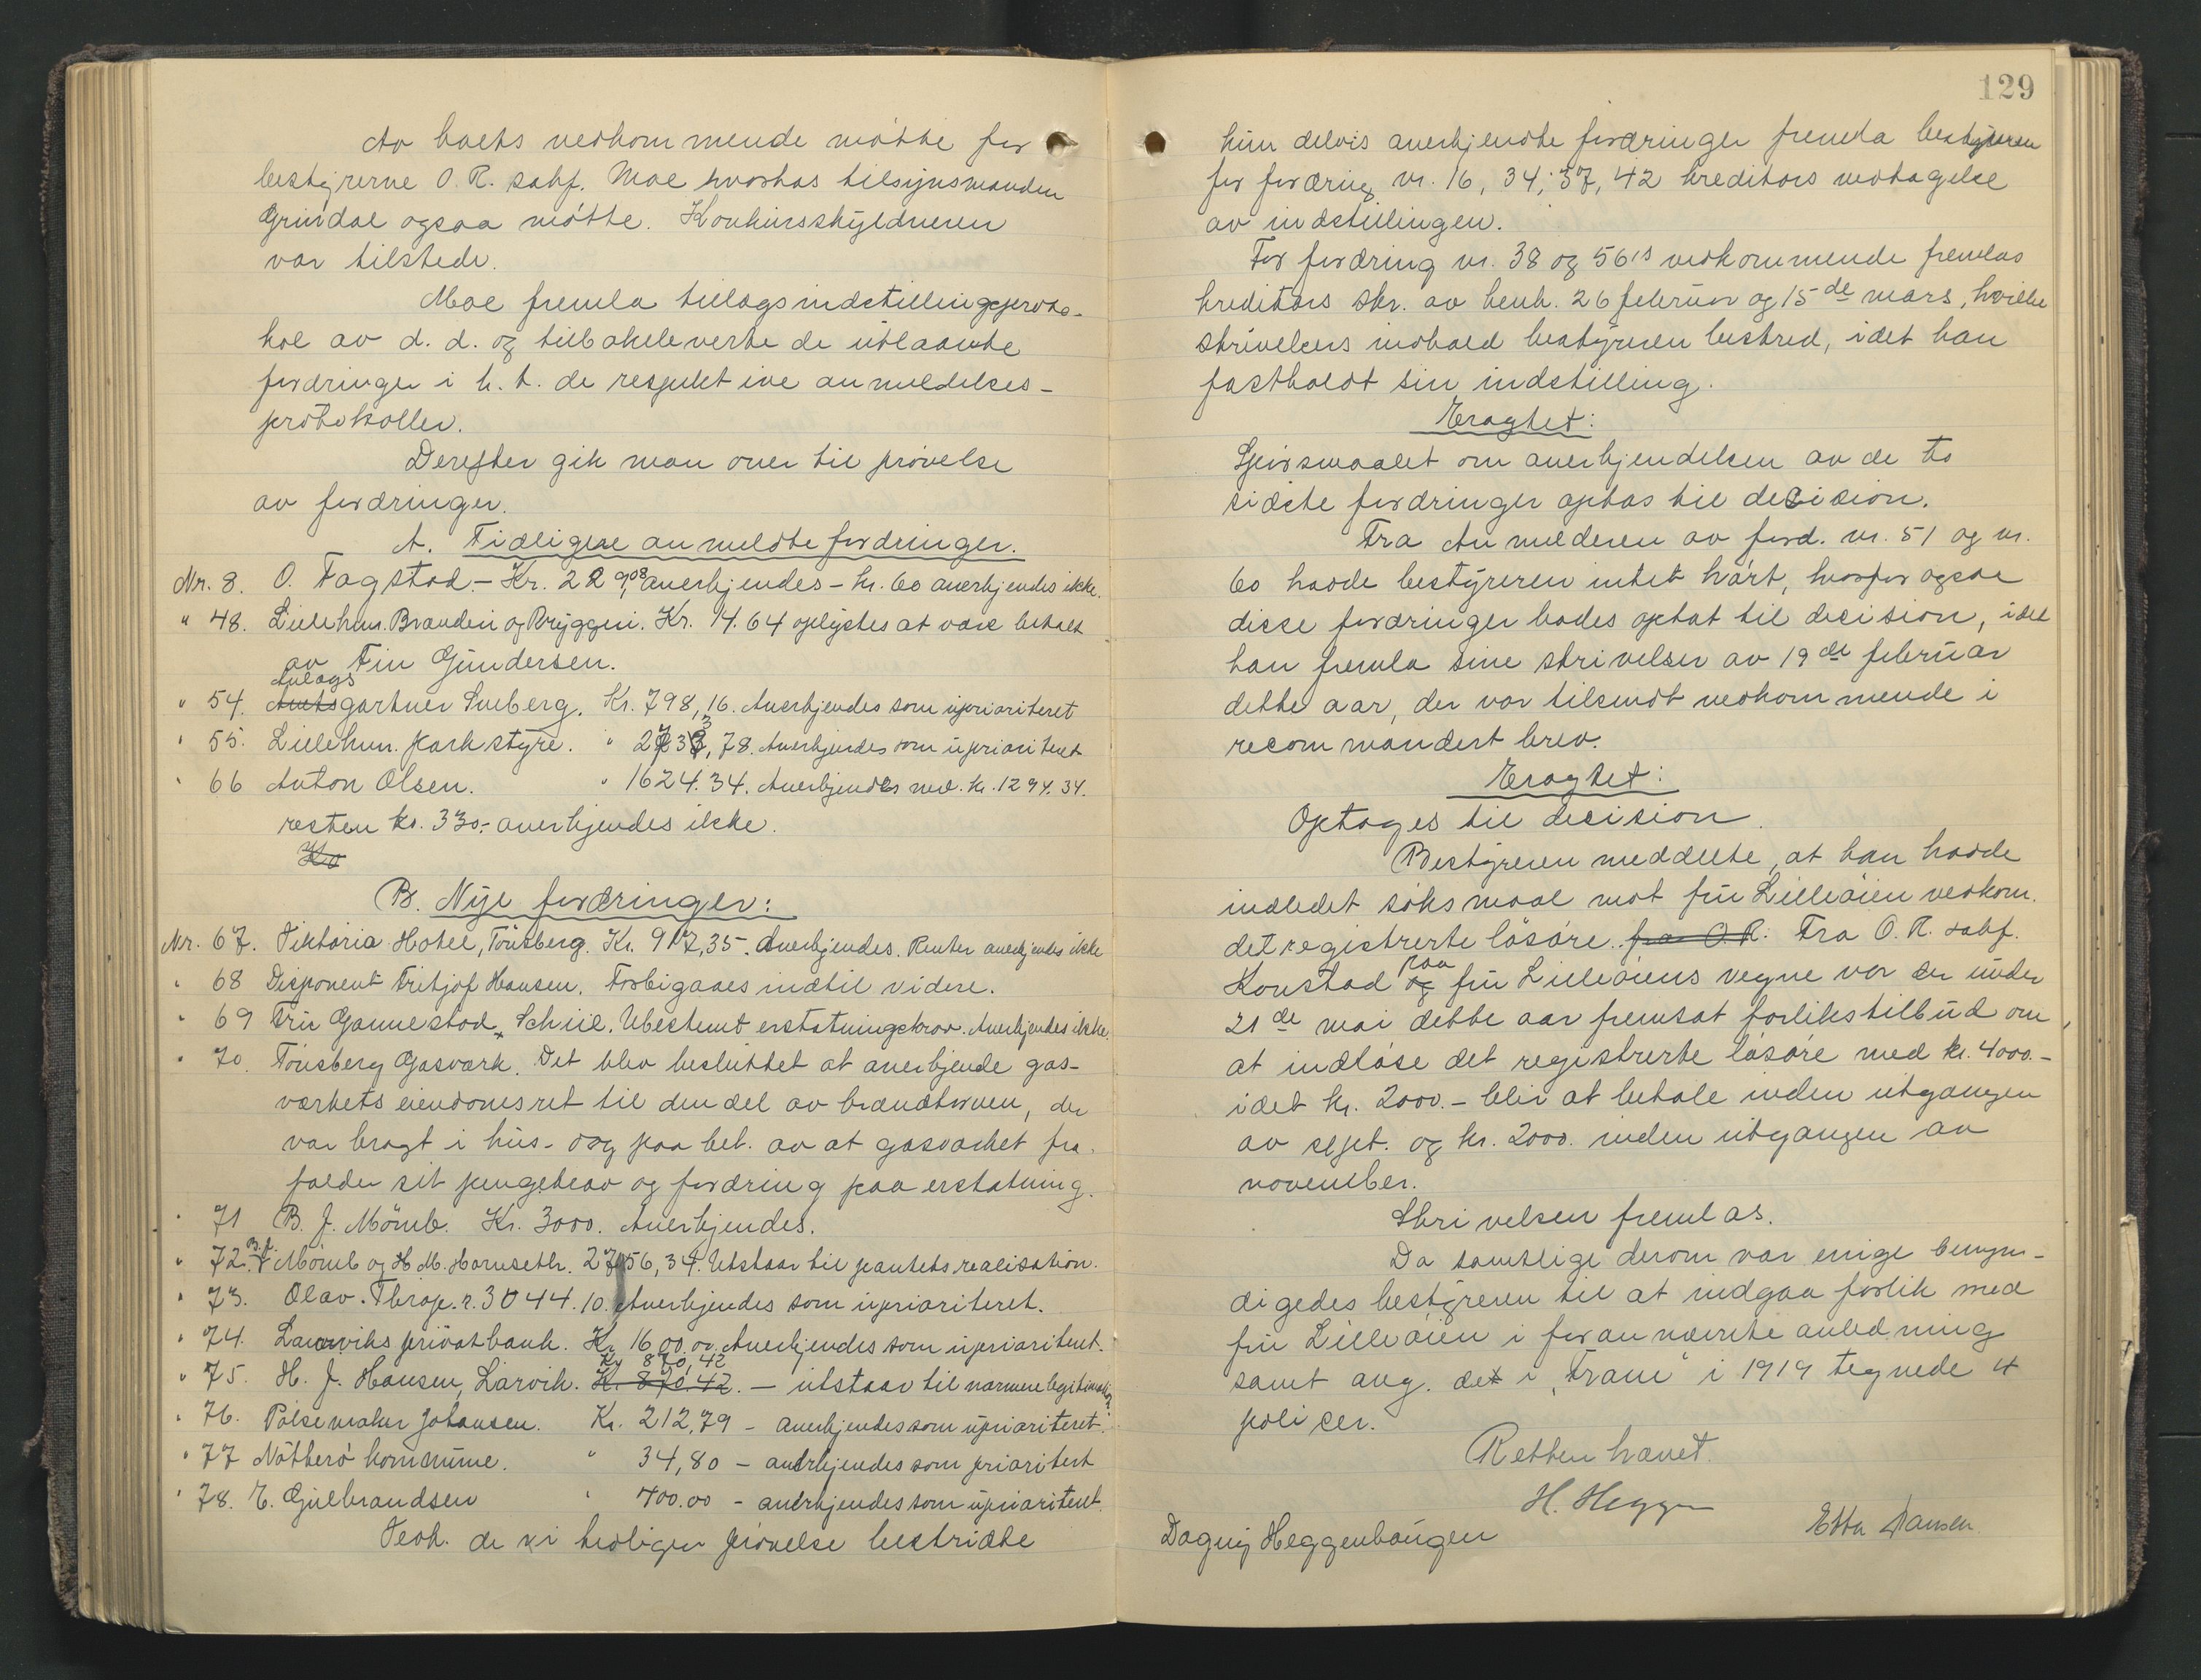 Av boets vedkommende møtte for
bestyrerne O. R. sakf. Moe hvorhos tilsynsmanden
Grindal ogsaa møtte. Konkursskyldneren
var tilstede.
Moe fremla tillægsindstillingsproto-
kol av d. d. og tilbakeleverte de utlaante
fordringer i h. t. de respektive anmeldelses-
protokoller.
Derefter gik man over til prøvelse
av fordringer.
A. Tidligere anmeldte fordringer.
Nr. 8. O. Fagstad. - Kr. 22 908, anerkjendes - kr. 60 anerkjendes ikke.
" 48. Lillehm. Brænderi og Bryggeri. Kr. 14.64 oplystes at være betalt
av Fin Gundersen.
Anlægs
" 54. Amtsgartner Smeberg. Kr. 798,16. Anerkjendes som uprioriteret
" 55. Lillehm. parkstyre. " 2733,78. Anerkjendes som uprioriteret
" 66 Anton Olsen. " 1624.34. Anerkjendes med kr. 1294.34.
resten kr. 330,- anerkjendes ikke.
Kr
B. Nye fordringer:
Nr. 67. Viktoria Hotel, Tønsberg. Kr. 917,35. Anerkjendes. Renter anerkjendes ikke
" 68 Disponent Fritjof Hansen. Forbigaaes indtil videre.
" 69 Fru Gannestad Schiie. Ubestemt erstatningskrav. Anerkjendes ikke.
" 70. Tønsberg Gasværk. Det blev besluttet at anerkjende gas-
værkets eiendomsret til den del av brændtorven, der
var bragt i hus - dog paa bet. av at gasværket fra-
falder sit pengekrav og fordring paa erstatning.
" 71 B. J. Mömb. Kr. 3000. Anerkjendes.
B. J.
" 72. Mömb og H. M. Hornseth. 27 56,34. Utstaar til pantets realisation.
" 73. Olav Throp. r. 3044.10. Anerkjendes som uprioriteret.
" 74. Laurviks privatbank. Kr 1600.00. Anerkjendes som uprioriteret.
Kr 870,42
" 75. H. J. Hansen, Larvik. Kr 870.42. - utstaar til nærmere legitimation.
" 76. Pølsemaker Johansen. Kr. 212,79 - anerkjendes som uprioriteret.
" 77 Nøtterø kommune. " 34,80 - anerkjendes som prioritert
" 78. E. Gulbrandsen " 400.00 - anerkjendes som uprioriteret.
Vedk. de ved tidligere prøvelse bestridte
129
kun delvis anerkjendte fordringer fremla bestyreren
for fordring nr. 16, 34, 37, 42 kreditors vedtagelse
av indstillingen.
For fordring nr. 38 og 56's vedkommende fremlas
kreditors skr. av henh. 26 februar og 15de mars, hvilke
skrivelsers indhold bestyreren bestred, idet han
fastholdt sin indstilling.
Eragtet:
Spørsmaalet om anerkjendelsen av de to
sidste fordringer optas til decision.
Fra Anmelderen av ford. nr. 51 og nr.
60 hadde bestyreren intet hørt, hvorfor ogsaa
disse fordringer bades optat til decision, idet
han fremla sine skrivelser av 19de februar
dette aar, der var tilsendt vedkommende i
recommandert brev.
Eragtet:
Optages til decision.
Bestyreren meddelte, at han hadde
indledet søksmaal mot fru Lilleøien vedkom.
det registrerte løsøre. fra O. R. Fra O. R. sakf.
paa
Konstad og fru Lilleøiens vegne var der under
21de mai dette aar fremsat forlikstilbud om,
at indløse det registrerte løsøre med kr. 4000.-
idet kr. 2000.- blir at betale inden utgangen
av sept. og kr. 2000. inden utgangen av
november.
Skrivelsen fremlas.
Da samtlige derom var enige bemyn-
digedes bestyreren til at indgaa forlik med
fru Lilleøien i forannævnte anledning
samt ang. det i "Fram" i 1919 tegnede 4
policer.
Retten hævet.
H. Hegge
Dagny Heggenhaugen